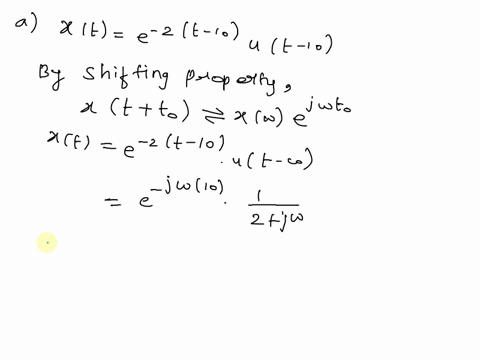 a) x(t) = e^{-2(t-10)} u(t-10)
By shifting property,
x(t+t₀) ⇌ x(ω) e^{jωt₀}
x(t) = e^{-2(t-10)} · u(t-∞)
= e^{-jω(10)} · \frac{1}{2+jω}